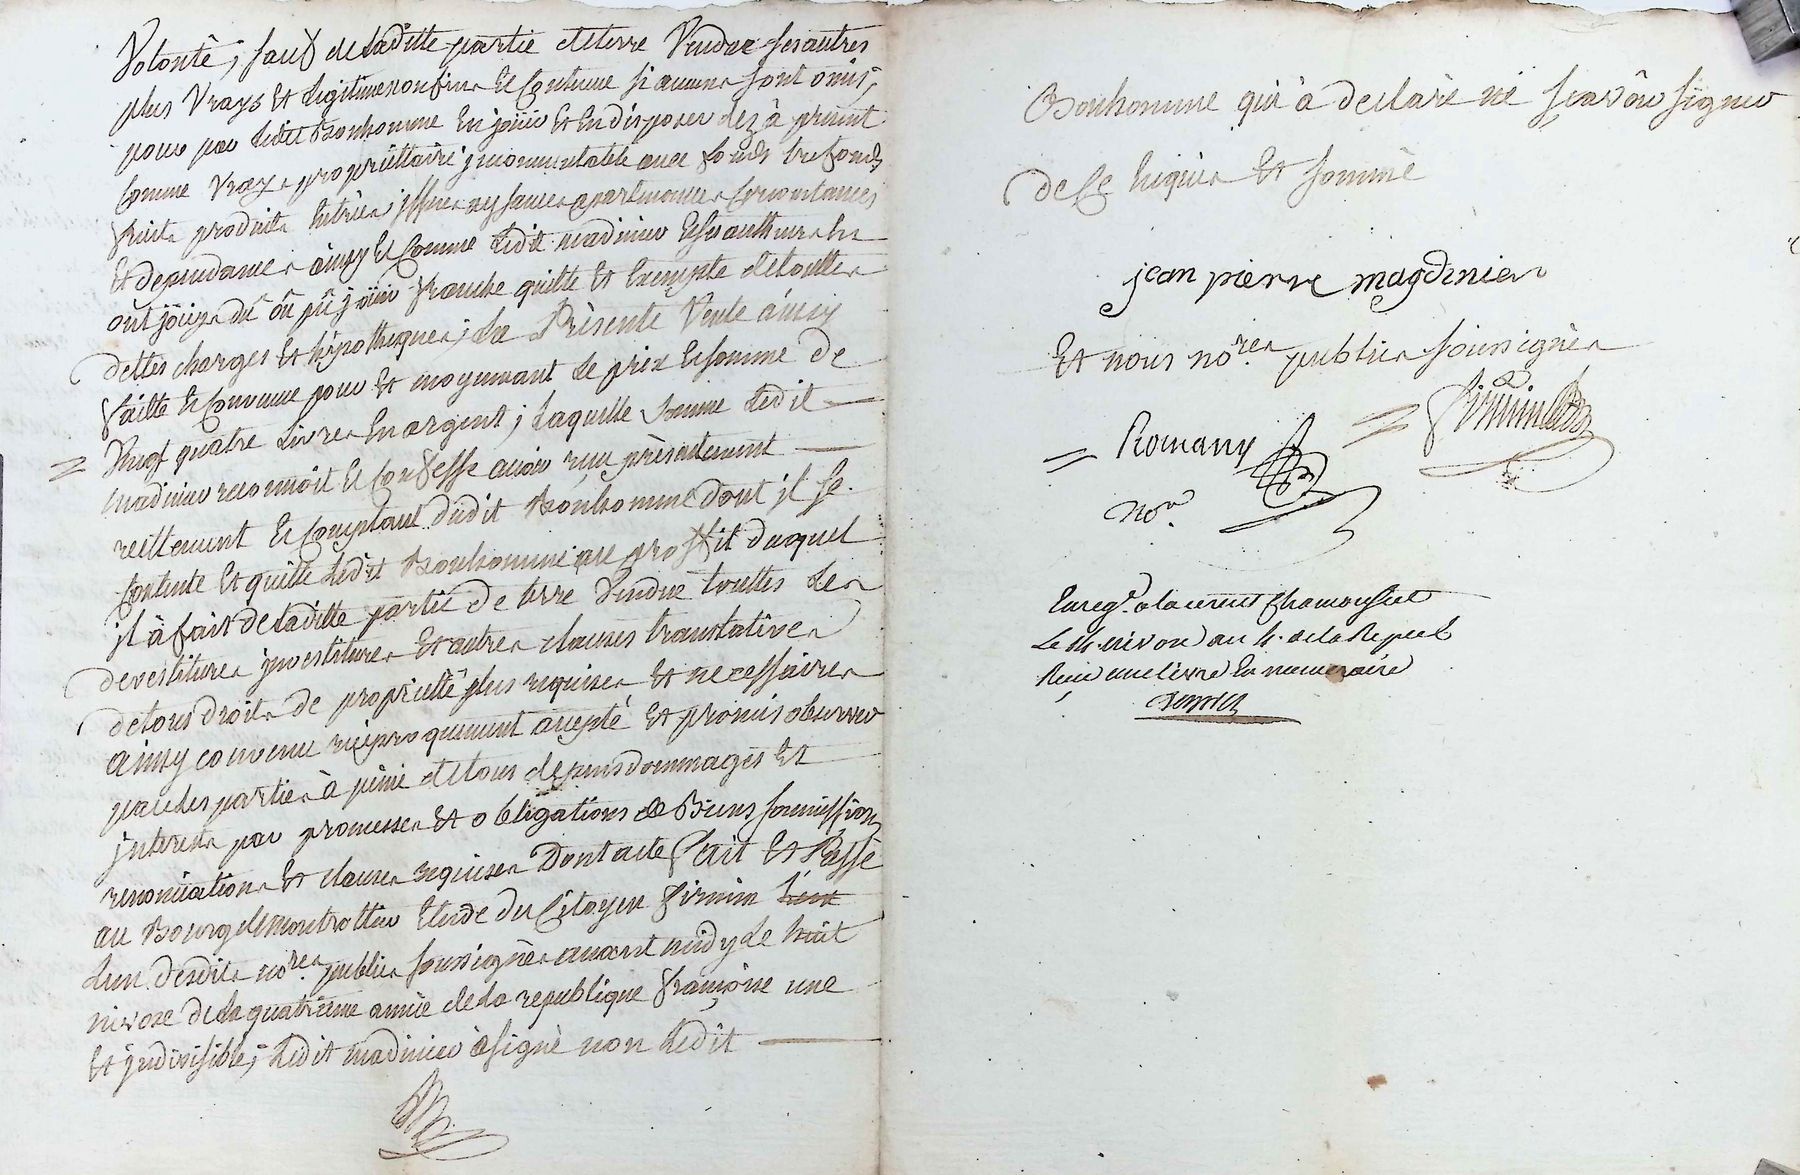 Volonté, sauf de laditte partie de terre Vendue ses autres
plus Vrays et Legitimes confins Et Contenue si aucuns sont omis,
pour par Ledit Bonhomme En joüir Et En disposer dez à présent
Comme Vray propriéttaire jncommutable avec fonds trefonds
fruits produits Entrées jssües aysances apartenances Circonstances
Et dependances ainsy Et Comme Ledit madinier Et ses autheurs En
ont joüys dû oû pû joüir franche quitte Et Exempte de touttes
dettes charges Et hÿpotheques; La Présente Vente ainsy
faitte Et Convenue pour Et moyennant Le prix Et somme de
Vingt quatre Livres En argent; Laquelle somme Ledit
madinier reconnoit Et Confesse avoir reçu présentement
reellement Et Comptant dudit Bonhomme dont jl se
Contente Et quitte Ledit Bonhomme au proffit duquel
jl à fait de laditte partie de terre Vendue touttes Les
devestitures jnvestitures Et autres clauses translatives
de tous droits de propriétté plus requises Et necessaires
ainsy convenu reciproquement accepté Et promis observer
par Les parties à peine de tous depens dommages Et
jnterets par promesses Et obligations de Biens soumissions
renonciations Et clauses requises Dont acte Fait Et Passé
au Bourg de montrottier Etude du Citoyen firmin
L'un desdits no.res publics soussignés avant midy Le huit
nivose de la quatrieme année de la republique françoise une
Et jndivisible, Ledit madinier à signé non Ledit
Bonhomme qui à declaré né sçavoir signer
de Ce Enquis Et sommé
jean pierre magdinier
Et nous no.res publics soussignés
Romany
no.re
firmin
Enreg.é a laurent Chamousset
Le 14 nivose an 4. de la Repub
Reçu une livre En numeraire